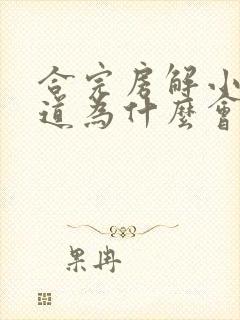 合完房解小
道為什麼會
果冉